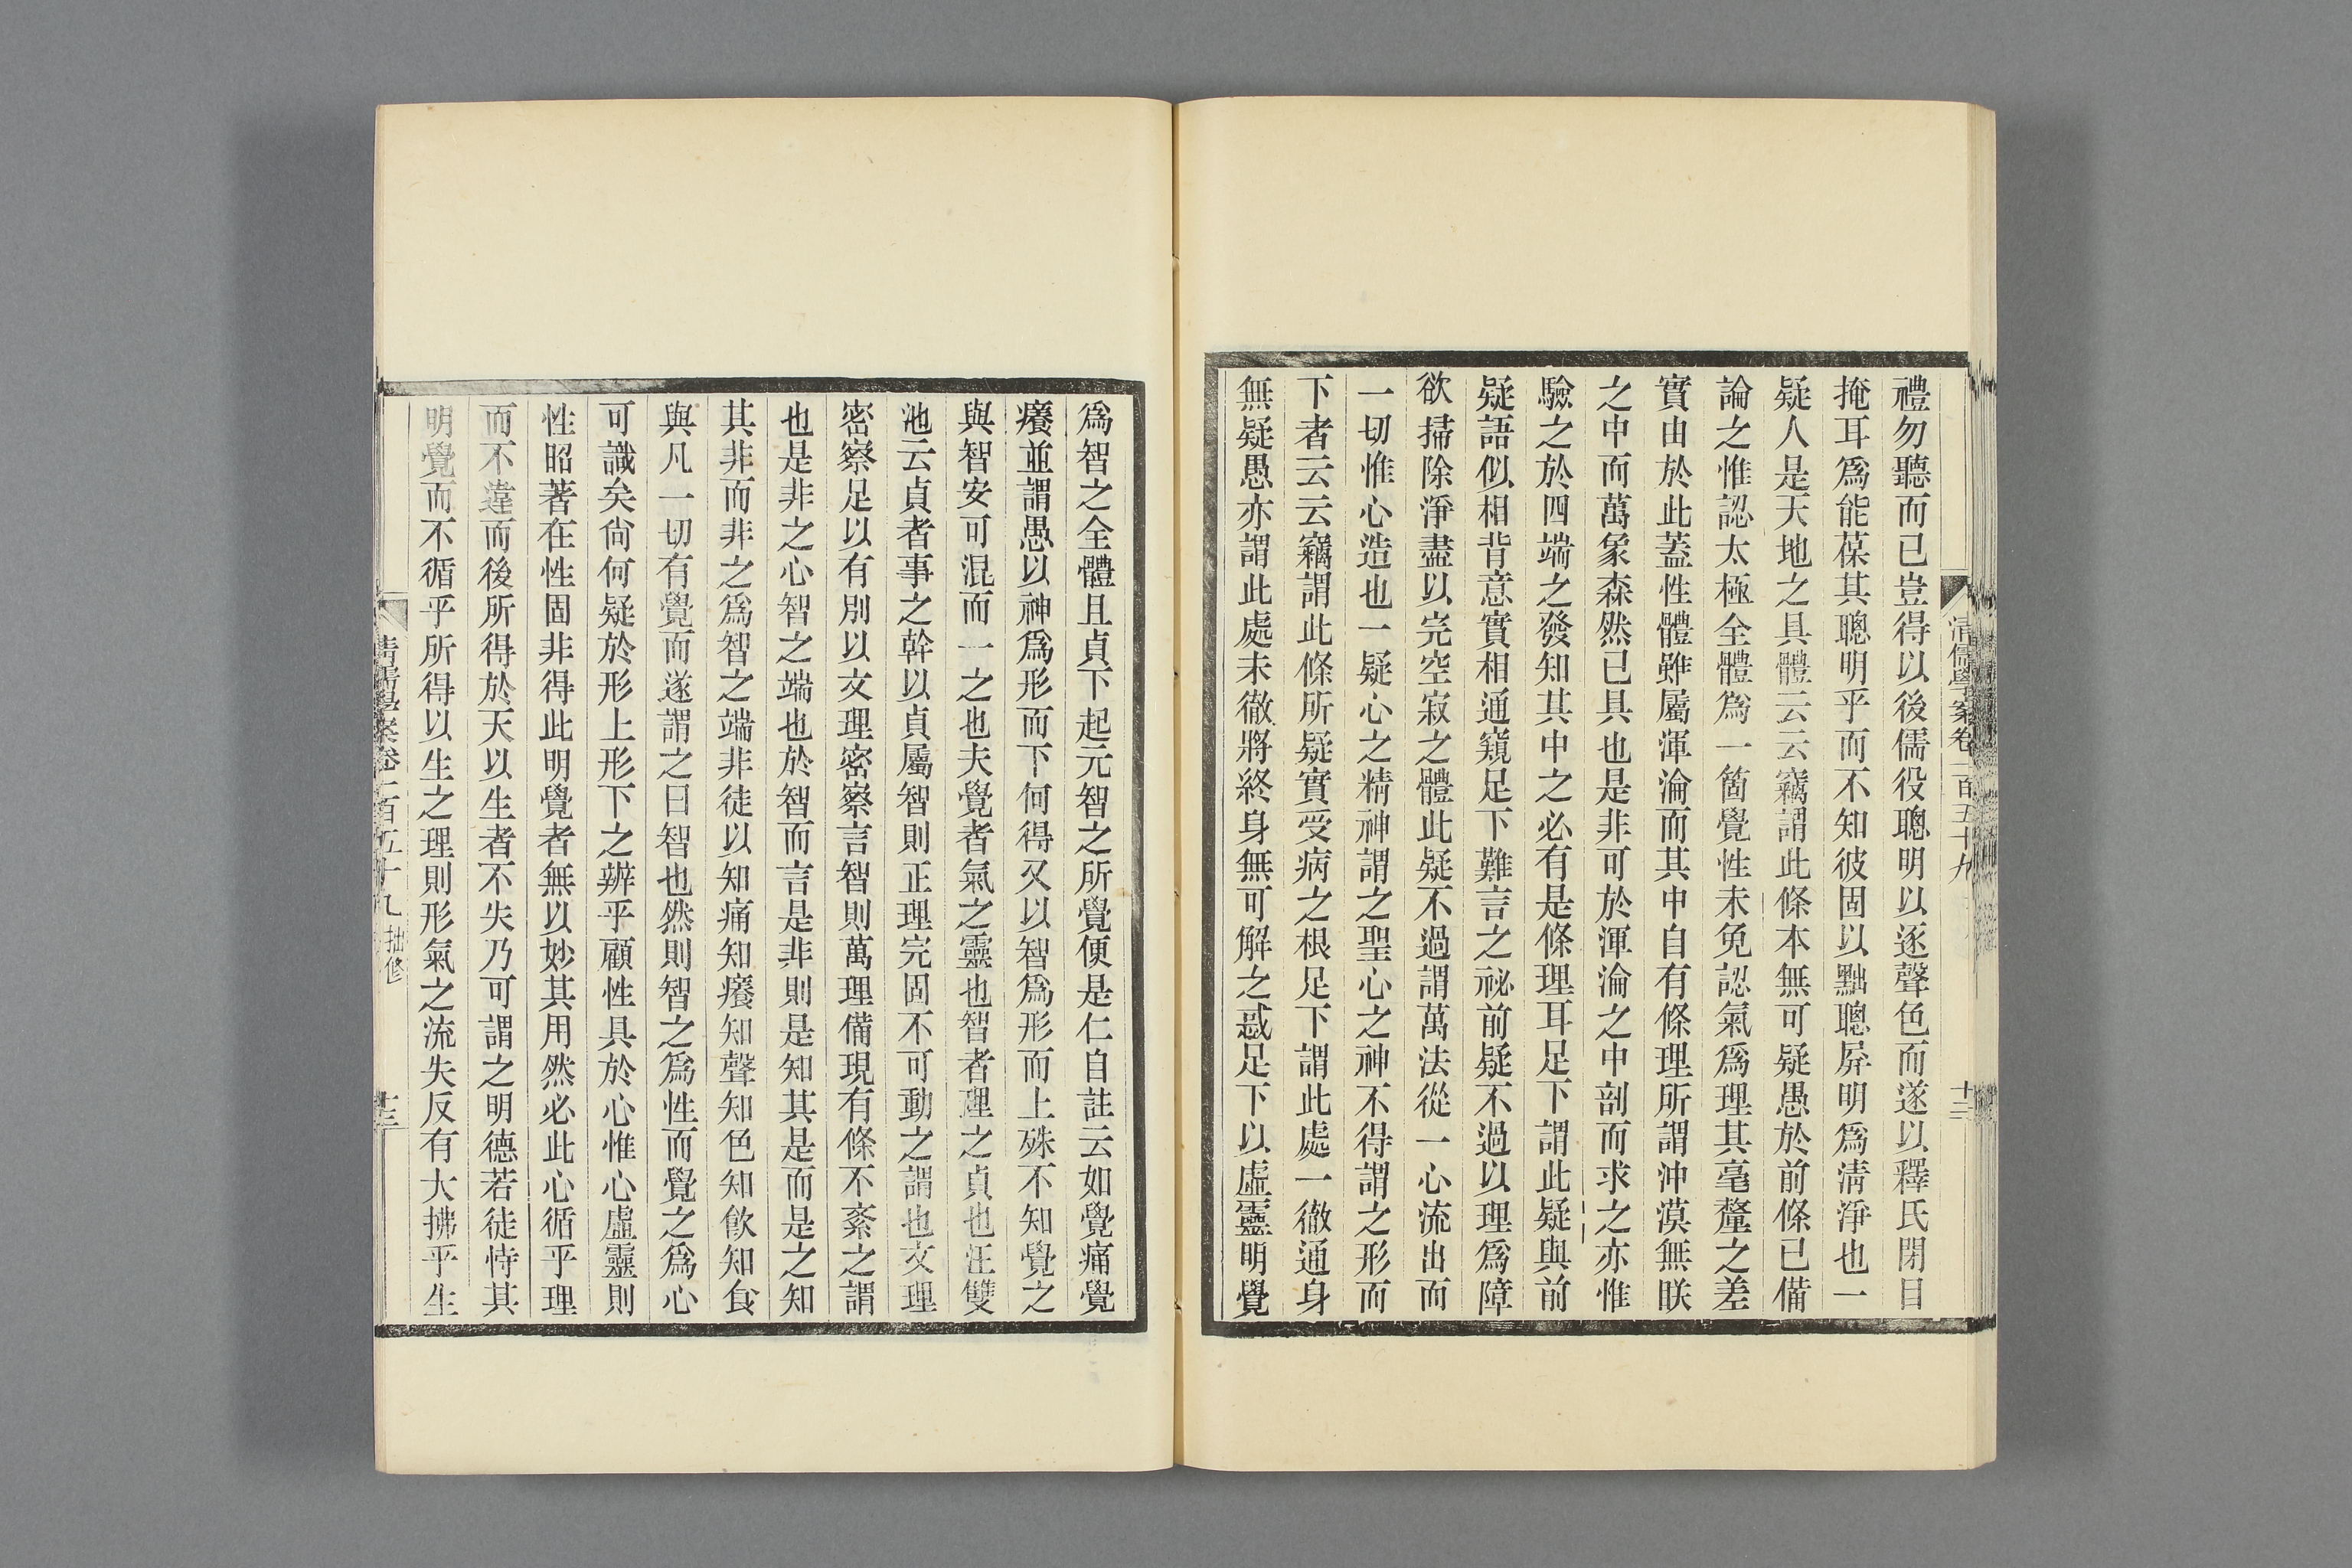 清儒學案卷一百五十九
十二
禮勿聽而已豈得以後儒役聰明以逐聲色而遂以釋氏閉目
掩耳爲能葆其聰明乎而不知彼固以黜聰屏明爲清淨也一
疑人是天地之具體云云竊謂此條本無可疑愚於前條已備
論之惟認太極全體爲一箇覺性未免認氣爲理其毫釐之差
實由於此蓋性體雖屬渾淪而其中自有條理所謂沖漠無朕
之中而萬象森然已具也是非可於渾淪之中剖而求之亦惟
驗之於四端之發知其中之必有是條理耳足下謂此疑與前
疑語似相背意實相通窺足下難言之祕前疑不過以理爲障
欲掃除淨盡以完空寂之體此疑不過謂萬法從一心流出而
一切惟心造也一疑心之精神謂之聖心之神不得謂之形而
下者云云竊謂此條所疑實受病之根足下謂此處一徹通身
無疑愚亦謂此處未徹將終身無可解之惑足下以虛靈明覺
爲智之全體且貞下起元智之所覺便是仁自註云如覺痛覺
癢並謂愚以神爲形而下何得又以智爲形而上殊不知覺之
與智安可混而一之也夫覺者氣之靈也智者理之貞也汪雙
池云貞者事之幹以貞屬智則正理完固不可動之謂也文理
密察足以有別以文理密察言智則萬理備現有條不紊之謂
也是非之心智之端也於智而言是非則是知其是而是之知
其非而非之爲智之端非徒以知痛知癢知聲知色知飲知食
與凡一切有覺而遂謂之曰智也然則智之爲性而覺之爲心
可識矣尙何疑於形上形下之辨乎顧性具於心惟心虛靈則
性昭著在性固非得此明覺者無以妙其用然必此心循乎理
而不違而後所得於天以生者不失乃可謂之明德若徒恃其
明覺而不循乎所得以生之理則形氣之流失反有大拂乎生
清儒學案卷一百五十九 拙修
十三